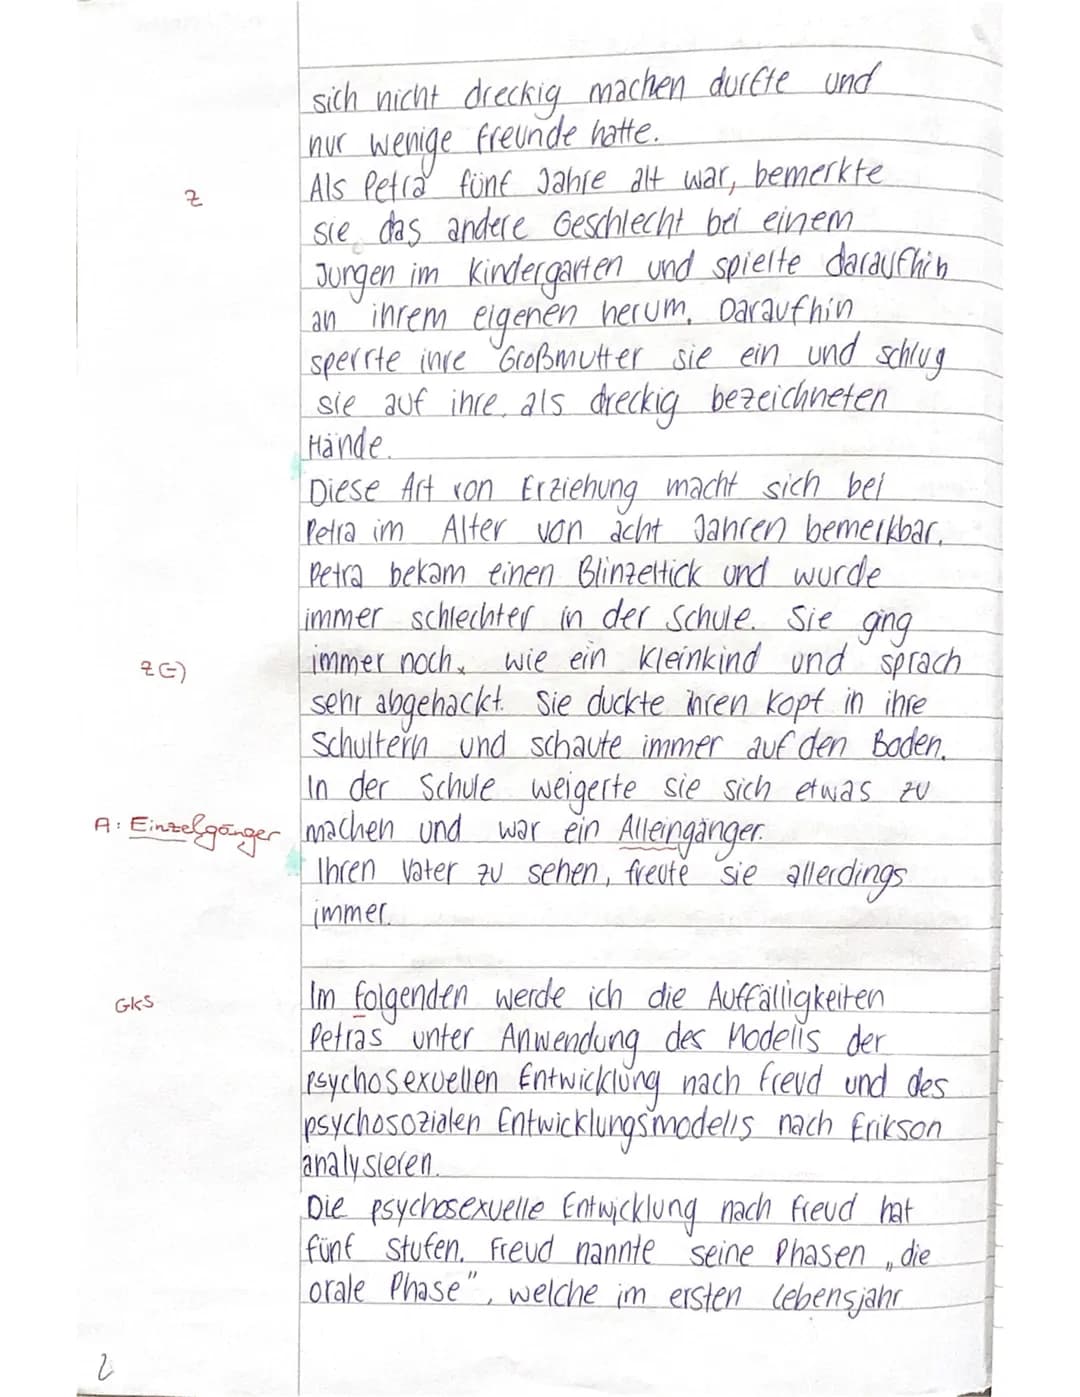 sich nicht dreckig machen durfte und
nur wenige Freunde hatte.
Z
Als Petra fünf Jahre alt war, bemerkte
sie das andere Geschlecht bei einem
Jungen im Kindergarten und spielte daraufhin
an ihrem eigenen herum. Daraufhin
sperrte ihre Großmutter sie ein und schlug
sie auf ihre als dreckig bezeichneten
Hände.
Diese Art von Erziehung macht sich bei
Petra im Alter von acht Jahren bemerkbar.
Petra bekam einen Blinzeltick und wurde
immer schlechter in der Schule. Sie ging
Z (-)
immer noch wie ein Kleinkind und sprach
sehr abgehackt. Sie duckte ihren Kopf in ihre
Schultern und schaute immer auf den Boden.
In der Schule weigerte sie sich etwas zu
A: Einzelgänger
machen und war ein Alleingänger.
Ihren Vater zu sehen, freute sie allerdings
immer.
GKS
Im folgenden werde ich die Auffälligkeiten
Petras unter Anwendung des Modells der
psychosexuellen Entwicklung nach Freud und des
psychosozialen Entwicklungsmodells nach Erikson
analysieren.
Die psychosexuelle Entwicklung nach Freud hat
fünf Stufen. Freud nannte seine Phasen „die
orale Phase", welche im ersten Lebensjahr
2